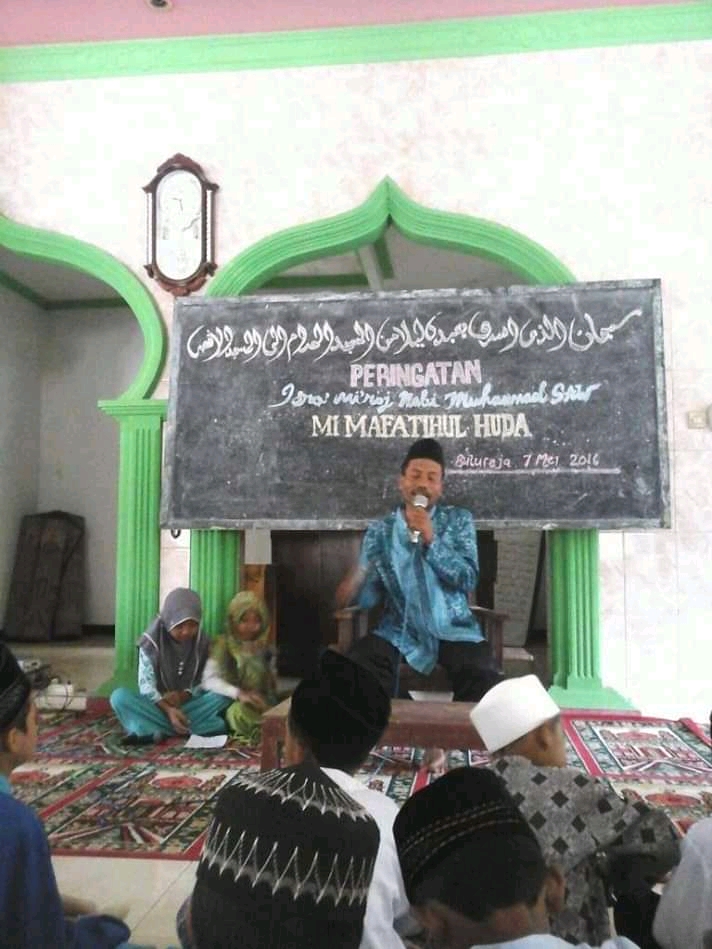 سبحان الذي اسرى بعبده ليلا من المسجد الحرام الى المسجد الاقصا
PERINGATAN
Isra' mi'raj Nabi Muhammad SAW
MI MAFATIHUL HUDA
Buluraja 7 Mei 2016